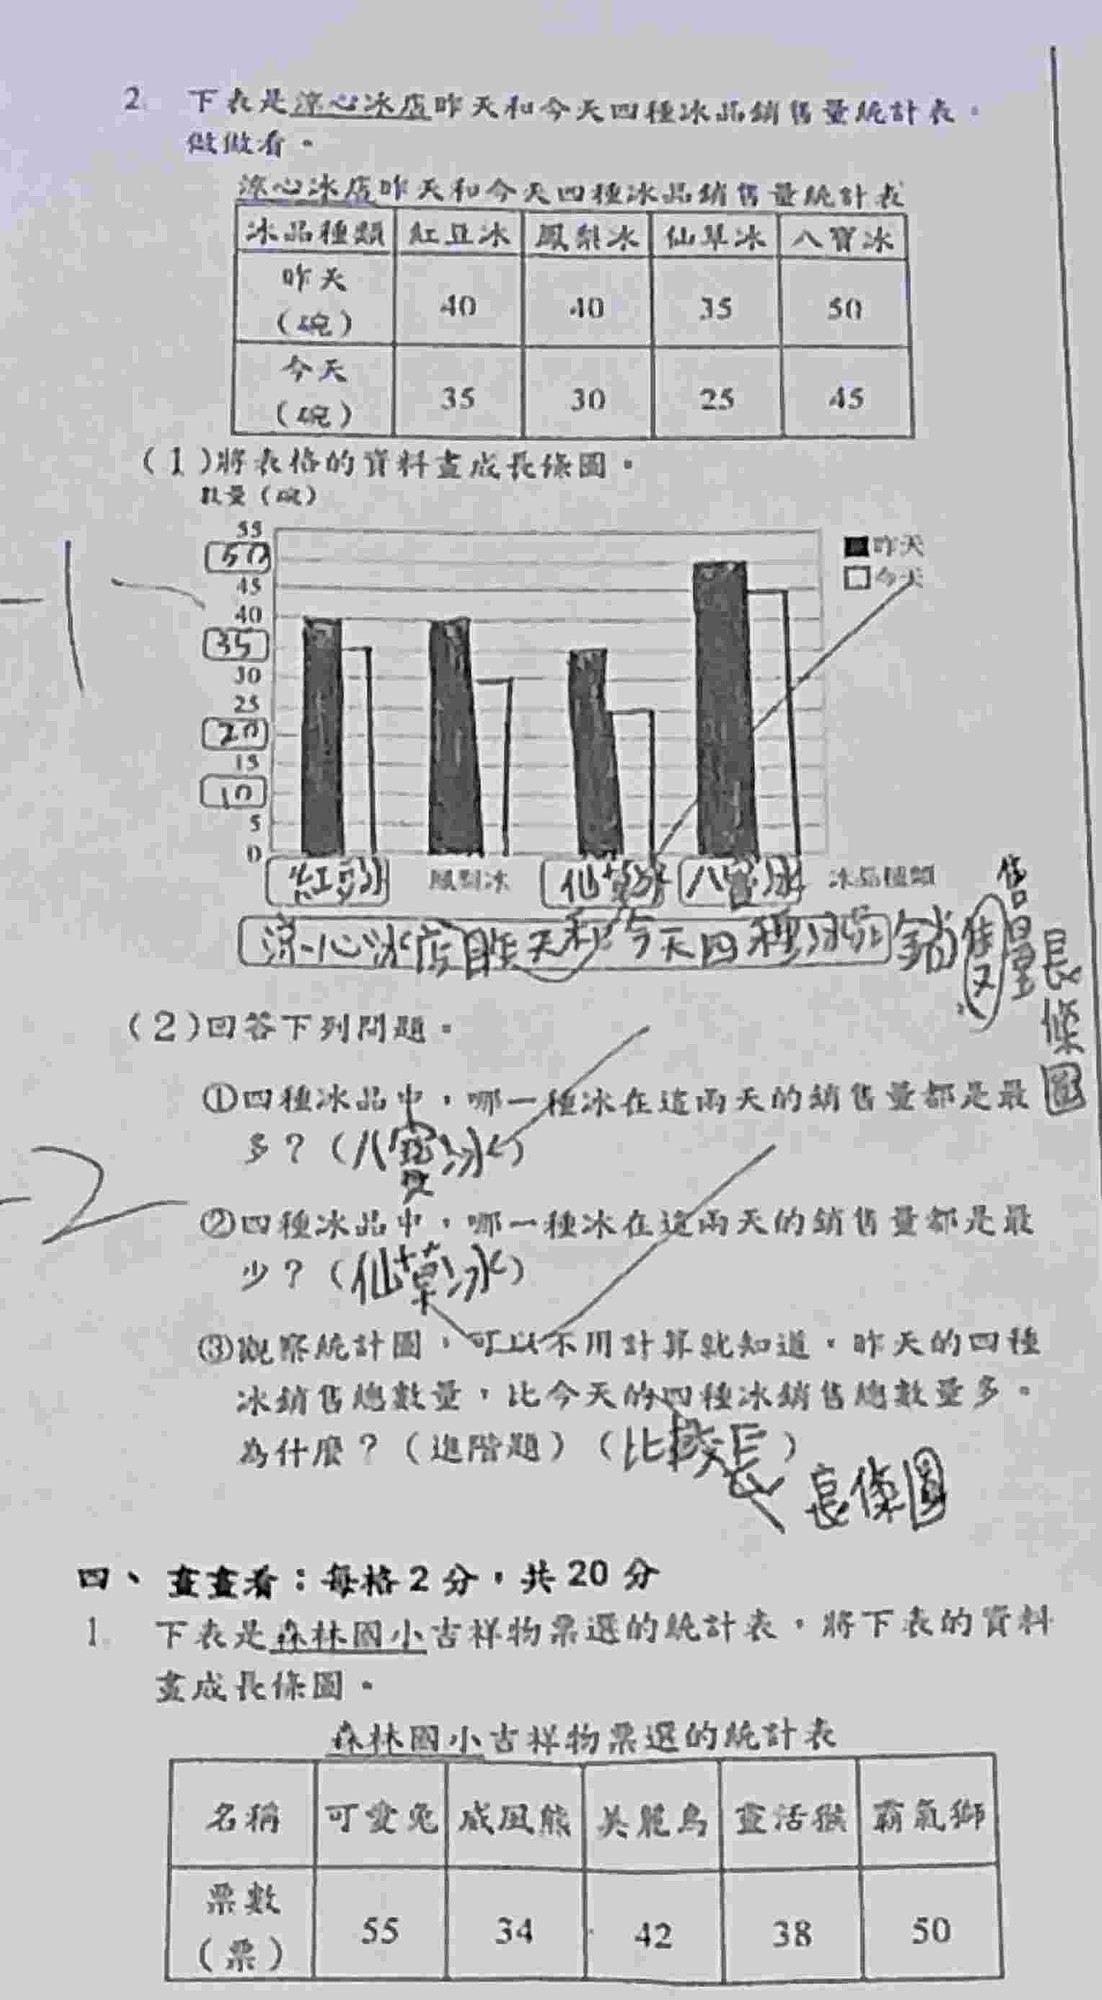 2. 下表是涼心冰店昨天和今天四種冰品銷售量統計表。
做做看。
涼心冰店昨天和今天四種冰品銷售量統計表
冰品種類 紅豆冰 鳳梨冰 仙草冰 八寶冰
昨天（碗） 40 40 35 50
今天（碗） 35 30 25 45
(1)將表格的資料畫成長條圖。
數量（碗）
55
50
45
40
35
30
25
20
15
10
5
0
昨天
今天
-1
紅豆冰 鳳梨冰 仙草冰 八寶冰 冰品種類
涼心冰店昨天和今天四種冰品銷售量長條圖
(2)回答下列問題。
①四種冰品中，哪一種冰在這兩天的銷售量都是最
多？（八寶冰）
-2
②四種冰品中，哪一種冰在這兩天的銷售量都是最
少？（仙草冰）
③觀察統計圖，可以不用計算就知道，昨天的四種
冰銷售總數量，比今天的四種冰銷售總數量多。
為什麼？（進階題）（比較長）
長條圖
四、畫畫看：每格2分，共20分
1. 下表是森林國小吉祥物票選的統計表，將下表的資料
畫成長條圖。
森林國小吉祥物票選的統計表
名稱 可愛兔 威風熊 美麗鳥 靈活猴 霸氣獅
票數（票） 55 34 42 38 50